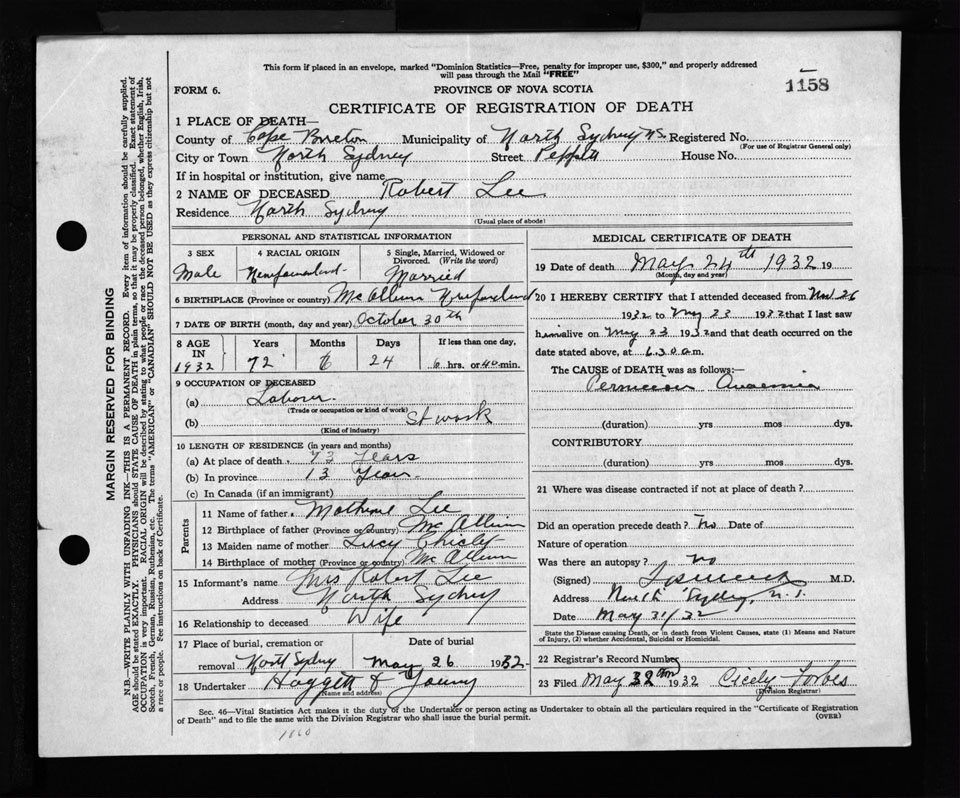 This form if placed in an envelope, marked "Dominion Statistics—Free, penalty for improper use, $300," and properly addressed
will pass through the Mail "FREE"
1158
FORM 6.
PROVINCE OF NOVA SCOTIA
CERTIFICATE OF REGISTRATION OF DEATH
1 PLACE OF DEATH—
County of Cape Breton Municipality of North Sydney N.S. Registered No.
(For use of Registrar General only)
City or Town North Sydney Street Peppett House No.
If in hospital or institution, give name
2 NAME OF DECEASED Robert Lee
Residence North Sydney
(Usual place of abode)
PERSONAL AND STATISTICAL INFORMATION
3 SEX
4 RACIAL ORIGIN
5 Single, Married, Widowed or
Divorced. (Write the word)
Male Newfoundland Married
6 BIRTHPLACE (Province or country) McCallum Newfoundland
7 DATE OF BIRTH (month, day and year) October 30th
8 AGE
IN
1932
Years Months Days If less than one day,
72 6 24 6 hrs. or 40 min.
9 OCCUPATION OF DECEASED
(a) Labourer
(Trade or occupation or kind of work)
(b) St work
(Kind of industry)
10 LENGTH OF RESIDENCE (in years and months)
(a) At place of death 13 Years
(b) In province 13 Years
(c) In Canada (if an immigrant)
Parents
11 Name of father Lee
12 Birthplace of father (Province or country) McCallum
13 Maiden name of mother Lucy
14 Birthplace of mother (Province or country) McCallum
15 Informant's name Mrs Robert Lee
Address North Sydney
16 Relationship to deceased Wife
17 Place of burial, cremation or Date of burial
removal North Sydney May 26 1932
18 Undertaker Haggett & Young
(Name and address)
MEDICAL CERTIFICATE OF DEATH
19 Date of death May 24th 1932 19
(Month, day and year)
20 I HEREBY CERTIFY that I attended deceased from Nov 26
1932 to May 23 1932 that I last saw
him alive on May 23 1932 and that death occurred on the
date stated above, at 6.30 a m.
The CAUSE of DEATH was as follows:
Pernicious Anaemia
(duration) yrs mos dys.
CONTRIBUTORY
(duration) yrs mos dys.
21 Where was disease contracted if not at place of death?
Did an operation precede death? No Date of
Nature of operation
Was there an autopsy? no
(Signed) M.D.
Address North Sydney, N.S.
Date May 31/32
State the Disease causing Death, or in death from Violent Causes, state (1) Means and
Nature of Injury, (2) whether Accidental, Suicidal or Homicidal.
22 Registrar's Record Number
23 Filed May 1932 Cicely Forbes
(Division Registrar)
Sec. 46—Vital Statistics Act makes it the duty of the Undertaker or person acting as Undertaker to obtain all the particulars required in the "Certificate of Registration
of Death" and to file the same with the Division Registrar who shall issue the burial permit.
(OVER)
1060
MARGIN RESERVED FOR BINDING
N.B.—WRITE PLAINLY WITH UNFADING INK—THIS IS A PERMANENT RECORD. Every item of information should be carefully supplied.
AGE should be stated EXACTLY. PHYSICIANS should STATE CAUSE OF DEATH in plain terms, so that it may be properly classified. Exact statement of
OCCUPATION is very important. RACIAL ORIGIN will be described by stating to what people or race the deceased person belonged, whether English, Irish,
Scotch, French, German, Russian, Ruthenian, etc. The terms "AMERICAN" or "CANADIAN" SHOULD NOT BE USED as they express citizenship but not
a race or people. See instructions on back of Certificate.